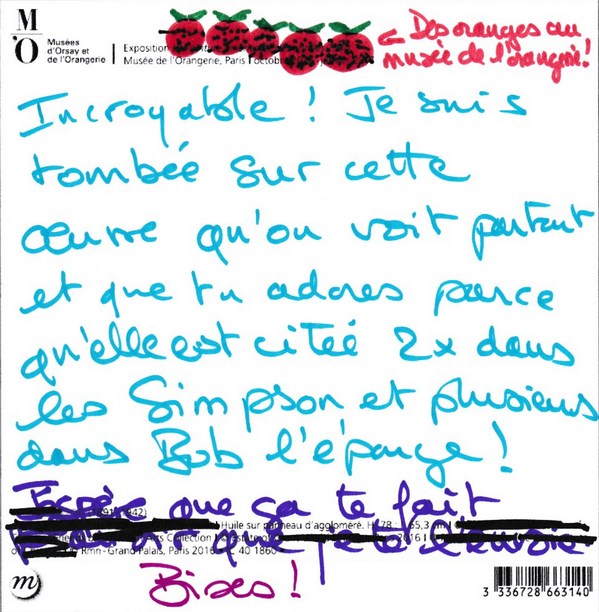 M
'O
Musées
d'Orsay et
de l'Orangerie
Exposition
Musée de l'Orangerie, Paris 1 octob
Des oranges au
musée de l'orangerie!
Incroyable ! Je suis
tombée sur cette
œuvre qu'on voit partout
et que tu adores parce
qu'elle est citée 2x dans
les Simpson et plusieurs
dans Bob l'éponge !
Espère que ça te fait
que je te l'envoie
942)
Huile sur panneau d'aggloméré. H. 78 65,3
Collection
Rmn - Grand Palais, Paris 2016
Bises !
m
3 336728 663140